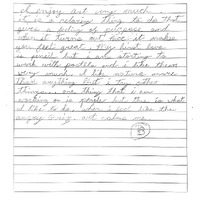 I enjoy art very much.
it is a relaxing thing to do that
gives a feeling of purpose and
when it turns out nice it makes
you feel great. My first love
is pencil but I am starting to
work with pastels and I like them
very much. I like nature more
than anything but I try other
things. one thing that I am
working on is people but this is what
I like to do when I feel like the
angry art calms me.